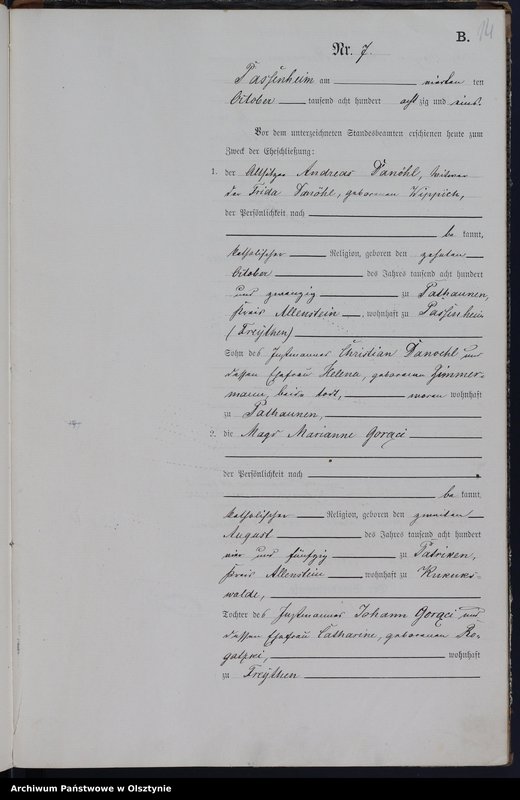 B. 14
Nr. 7.
Passenheim am vierten ten
October tausend acht hundert acht zig und eins.
Vor dem unterzeichneten Standesbeamten erschienen heute zum
Zweck der Eheschließung:
1. der Altsitzer Andreas Danöhl, Witwer
der Frida Danöhl, geborenen Wippich,
der Persönlichkeit nach
be kannt,
katholischer Religion, geboren den zehnten
October des Jahres tausend acht hundert
und zwanzig zu Pathaunen,
Kreis Allenstein, wohnhaft zu Passenheim
(Freythen)
Sohn des Instmannes Christian Danoehl und
dessen Ehefrau Helena, geborenen Zimmer-
mann, beide todt, waren wohnhaft
zu Pathaunen,
2. die Magd Marianne Gorqci
der Persönlichkeit nach
be kannt,
katholischer Religion, geboren den zweiten
August des Jahres tausend acht hundert
vier und fünfzig zu Patricken,
Kreis Allenstein wohnhaft zu Kukuks-
walde,
Tochter des Instmannes Johann Gorqci und
dessen Ehefrau Catharine, geborenen Ro-
galski, wohnhaft
zu Freythen
Archiwum Państwowe w Olsztynie